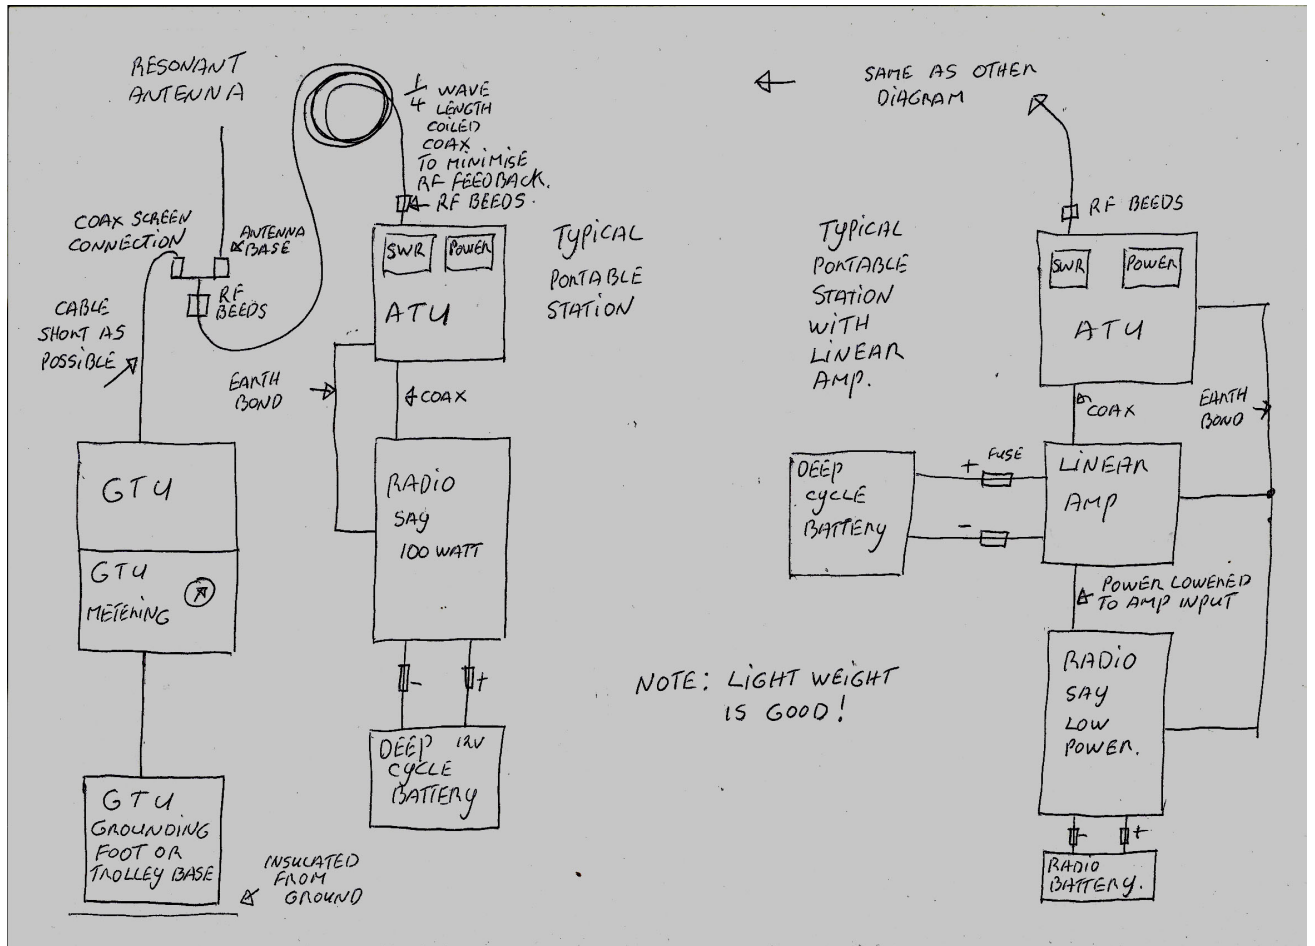 RESONANT
ANTENNA
1/4 WAVE
LENGTH
COILED
COAX
TO MINIMISE
RF FEEDBACK.
RF BEEDS.
COAX SCREEN
CONNECTION
ANTENNA
BASE
RF
BEEDS
CABLE
SHORT AS
POSSIBLE
SWR
POWER
ATU
TYPICAL
PORTABLE
STATION
EARTH
BOND
COAX
GTU
GTU
METERING
RADIO
SAY
100 WATT
-
+
DEEP 12V
CYCLE
BATTERY
GTU
GROUNDING
FOOT OR
TROLLEY BASE
INSULATED
FROM
GROUND
SAME AS OTHER
DIAGRAM
RF BEEDS
TYPICAL
PORTABLE
STATION
WITH
LINEAR
AMP.
SWR
POWER
ATU
COAX
EARTH
BOND
DEEP
CYCLE
BATTERY
+ FUSE
-
LINEAR
AMP
POWER LOWERED
TO AMP INPUT
RADIO
SAY
LOW
POWER.
-
+
RADIO
BATTERY.
NOTE: LIGHT WEIGHT
IS GOOD!